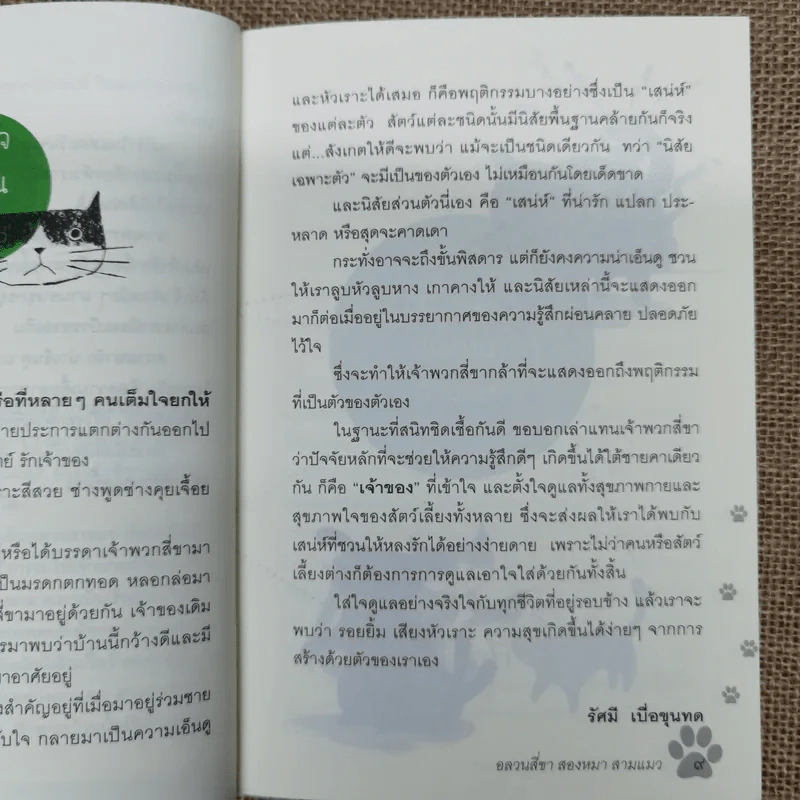 จ
น
ร
อที่หลายๆ คนเต็มใจยกให้
ายประการแตกต่างกันออกไป
ตย์ รักเจ้าของ
าะสีสวย ช่างพูดช่างคุยเจื้อย
หรือได้บรรดาเจ้าพวกสี่ขามา
ป็นมรดกตกทอด หลอกล่อมา
สี่ขามาอยู่ด้วยกัน เจ้าของเดิม
รมาพบว่าบ้านนี้กว้างดีและมี
าอาศัยอยู่
งสำคัญอยู่ที่เมื่อมาอยู่ร่วมชาย
ับใจ กลายมาเป็นความเอ็นดู
และหัวเราะได้เสมอ ก็คือพฤติกรรมบางอย่างซึ่งเป็น "เสน่ห์"
ของแต่ละตัว สัตว์แต่ละชนิดนั้นมีนิสัยพื้นฐานคล้ายกันก็จริง
แต่...สังเกตให้ดีจะพบว่า แม้จะเป็นชนิดเดียวกัน ทว่า "นิสัย
เฉพาะตัว" จะมีเป็นของตัวเอง ไม่เหมือนกันโดยเด็ดขาด
และนิสัยส่วนตัวนี่เอง คือ "เสน่ห์" ที่น่ารัก แปลก ประ-
หลาด หรือสุดจะคาดเดา
กระทั่งอาจจะถึงขั้นพิสดาร แต่ก็ยังคงความน่าเอ็นดู ชวน
ให้เราลูบหัวลูบหาง เกาคางให้ และนิสัยเหล่านี้จะแสดงออก
มาก็ต่อเมื่ออยู่ในบรรยากาศของความรู้สึกผ่อนคลาย ปลอดภัย
ไว้ใจ
ซึ่งจะทำให้เจ้าพวกสี่ขากล้าที่จะแสดงออกถึงพฤติกรรม
ที่เป็นตัวของตัวเอง
ในฐานะที่สนิทชิดเชื้อกันดี ขอบอกเล่าแทนเจ้าพวกสี่ขา
ว่าปัจจัยหลักที่จะช่วยให้ความรู้สึกดีๆ เกิดขึ้นได้ใต้ชายคาเดียว
กัน ก็คือ "เจ้าของ" ที่เข้าใจ และตั้งใจดูแลทั้งสุขภาพกายและ
สุขภาพใจของสัตว์เลี้ยงทั้งหลาย ซึ่งจะส่งผลให้เราได้พบกับ
เสน่ห์ที่ชวนให้หลงรักได้อย่างง่ายดาย เพราะไม่ว่าคนหรือสัตว์
เลี้ยงต่างก็ต้องการการดูแลเอาใจใส่ด้วยกันทั้งสิ้น
ใส่ใจดูแลอย่างจริงใจกับทุกชีวิตที่อยู่รอบข้าง แล้วเราจะ
พบว่า รอยยิ้ม เสียงหัวเราะ ความสุขเกิดขึ้นได้ง่ายๆ จากการ
สร้างด้วยตัวของเราเอง
รัศมี เบื่อขุนทด
อลวนสี่ขา สองหมา สามแมว
๙